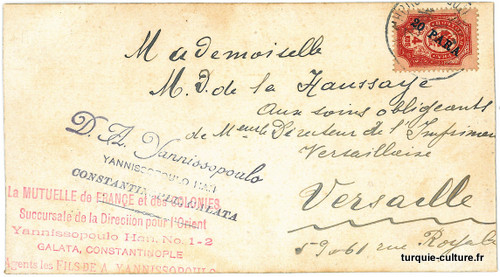 20 PARA
Mademoiselle
M. J. de la Haussaye
Aux soins obligeants
de Directeur de l'Imprimerie
Versaillaise
Versaille
59 61 rue Royale
D. A. Yannissopoulo
YANNISSOPOULO HAN
CONSTANTINOPLE GALATA
La MUTUELLE de FRANCE et des COLONIES
Succursale de la Direction pour l'Orient
Yannissopoulo Han, No. 1-2
GALATA, CONSTANTINOPLE
Agents les FILS DE A. YANNISSOPOULO
turquie-culture.fr